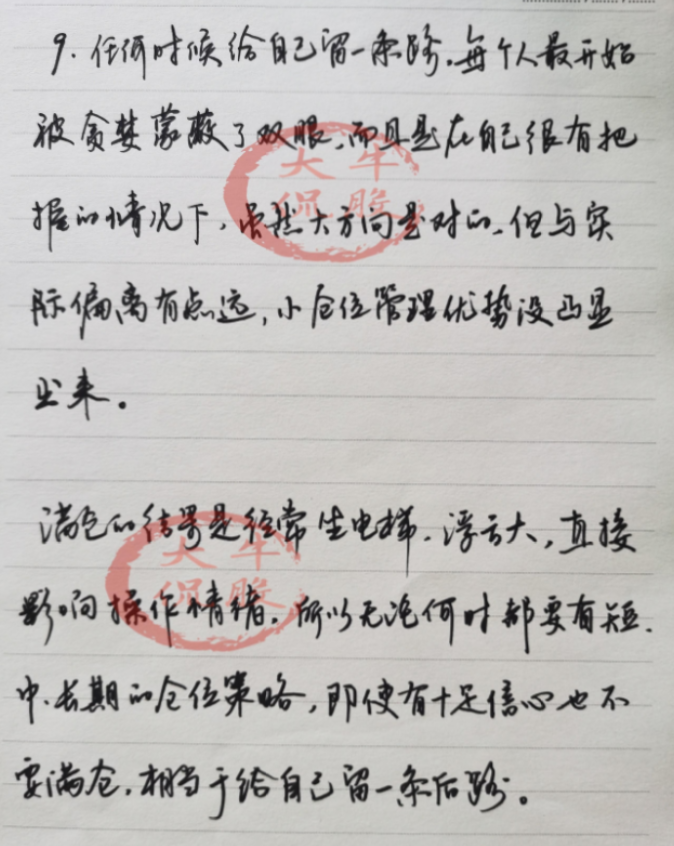 9. 任何时候给自己留一条路。每个人最开始
被贪婪蒙蔽了双眼,而且是在自己很有把
握的情况下,虽然大方向是对的,但与实
际偏离有点远,小仓位管理优势没凸显
出来。
满仓的结果是经常坐电梯,浮亏大,直接
影响操作情绪。所以无论何时都要有短.
中.长期的仓位策略,即使有十足信心也不
要满仓,相当于给自己留一条后路。
大牛
侃股
大牛
侃股